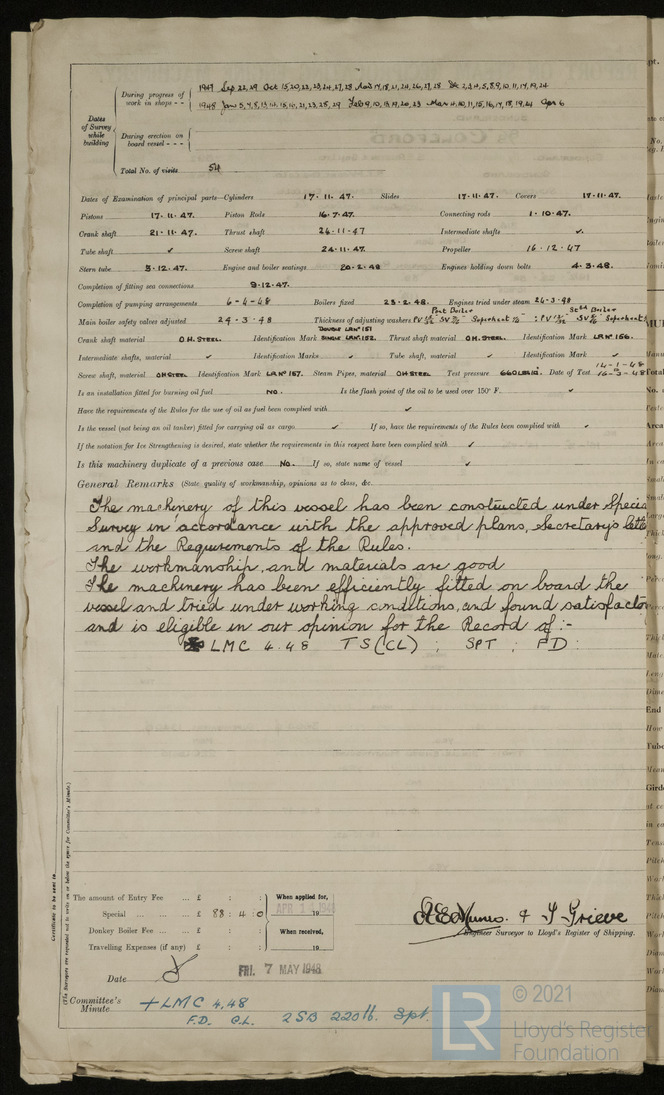 1947 Sep 22, 29 Oct 15, 20, 22, 23, 24, 27, 28 Nov 14, 18, 21, 24, 26, 27, 28 Dec 2, 3, 4, 5, 8, 9, 10, 11, 17, 19, 24
During progress of work in shops - -
1948 Jan 5, 7, 8, 13, 14, 15, 16, 21, 23, 28, 29 Feb 9, 10, 13, 19, 20, 23 Mar 4, 10, 11, 15, 16, 17, 18, 19, 24 Apr 6
Dates of Survey while building
During erection on board vessel - - -
Total No. of visits 54
Dates of Examination of principal parts—Cylinders 17.11.47. Slides 17.11.47. Covers 17.11.47.
Pistons 17.11.47. Piston Rods 16.7.47. Connecting rods 1.10.47.
Crank shaft 21.11.47. Thrust shaft 24.11.47 Intermediate shafts ✓
Tube shaft ✓ Screw shaft 24.11.47. Propeller 16.12.47
Stern tube 3.12.47. Engine and boiler seatings 20.2.48 Engines holding down bolts 4.3.48.
Completion of fitting sea connections 9.12.47.
Completion of pumping arrangements 6-4-48 Boilers fixed 23.2.48. Engines tried under steam 24-3-48
Port Boiler Stbd Boiler
Main boiler safety valves adjusted 24.3.48 Thickness of adjusting washers PV SV Superheat : PV SV Superheat
DOUBLE LRNo 151
Crank shaft material O.H. STEEL. Identification Mark SINGLE LRNo 152. Thrust shaft material O.H. STEEL. Identification Mark LRNo 156.
Intermediate shafts, material ✓ Identification Marks ✓ Tube shaft, material ✓ Identification Mark ✓
14-1-48
Screw shaft, material OH STEEL Identification Mark LRNo 157. Steam Pipes, material OH STEEL Test pressure 660 LBS/□". Date of Test 16-3-48
Is an installation fitted for burning oil fuel NO. Is the flash point of the oil to be used over 150° F. ✓
Have the requirements of the Rules for the use of oil as fuel been complied with ✓
Is the vessel (not being an oil tanker) fitted for carrying oil as cargo ✓ If so, have the requirements of the Rules been complied with ✓
If the notation for Ice Strengthening is desired, state whether the requirements in this respect have been complied with ✓
Is this machinery duplicate of a previous case NO. If so, state name of vessel ✓
General Remarks (State quality of workmanship, opinions as to class, &c.
The machinery of this vessel has been constructed under Specia
Survey in accordance with the approved plans, Secretary's lette
and the Requirements of the Rules.
The workmanship, and materials are good
The machinery has been efficiently fitted on board the
vessel and tried under working conditions, and found satisfacto
and is eligible in our opinion for the Record of :-
✠ LMC 4.48 TS(CL) ; SPT ; FD :
Certificate to be sent to
(The Surveyors are requested not to write on or below the space for Committee's Minute.)
The amount of Entry Fee ... £ : : When applied for,
APR 1948
Special ... ... ... £ 88 : 4 : 0 19
Donkey Boiler Fee ... ... £ : : When received,
Travelling Expenses (if any) £ : : 19
& J Grieve
Engineer Surveyor to Lloyd's Register of Shipping.
Date FRI. 7 MAY 1948
Committee's Minute + LMC 4.48
F.D. C.L. 2SB 220 lb. Spt.
LR © 2021
Lloyd's Register
Foundation